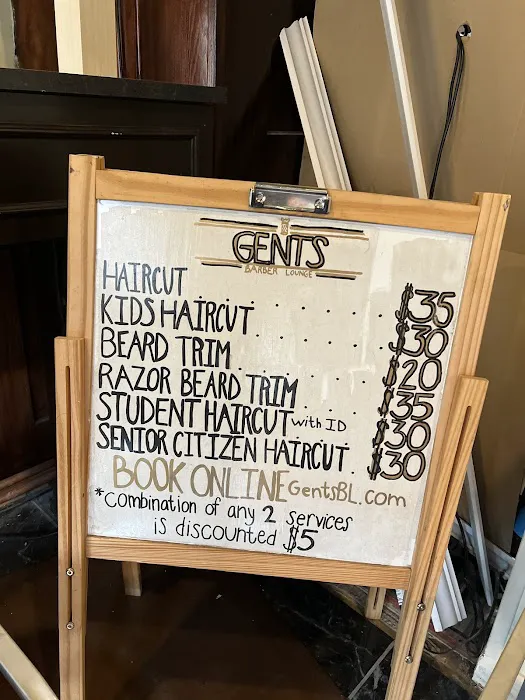 GENTS
BARBER LOUNGE
HAIRCUT . . . . . $35
KIDS HAIRCUT . . . . $30
BEARD TRIM . . . . $20
RAZOR BEARD TRIM . . . $35
STUDENT HAIRCUT with ID $30
SENIOR CITIZEN HAIRCUT . $30
BOOK ONLINE GentsBL.com
*Combination of any 2 services
is discounted $5